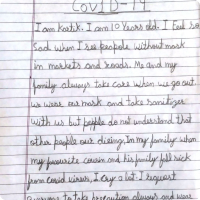 COVID-19
I am kartik. I am 10 Years old. I Feel so
Sad when I see peopole without mask
in markets and roads. Me and my
family always take care when we go out
we were our mask and take sanitizer
with us but people do not understand that
other people our dieing. In my family when
my favourite cousin and his family fell sick
from covid virus, I cry a lot. I request
everyone to take precaution always and were